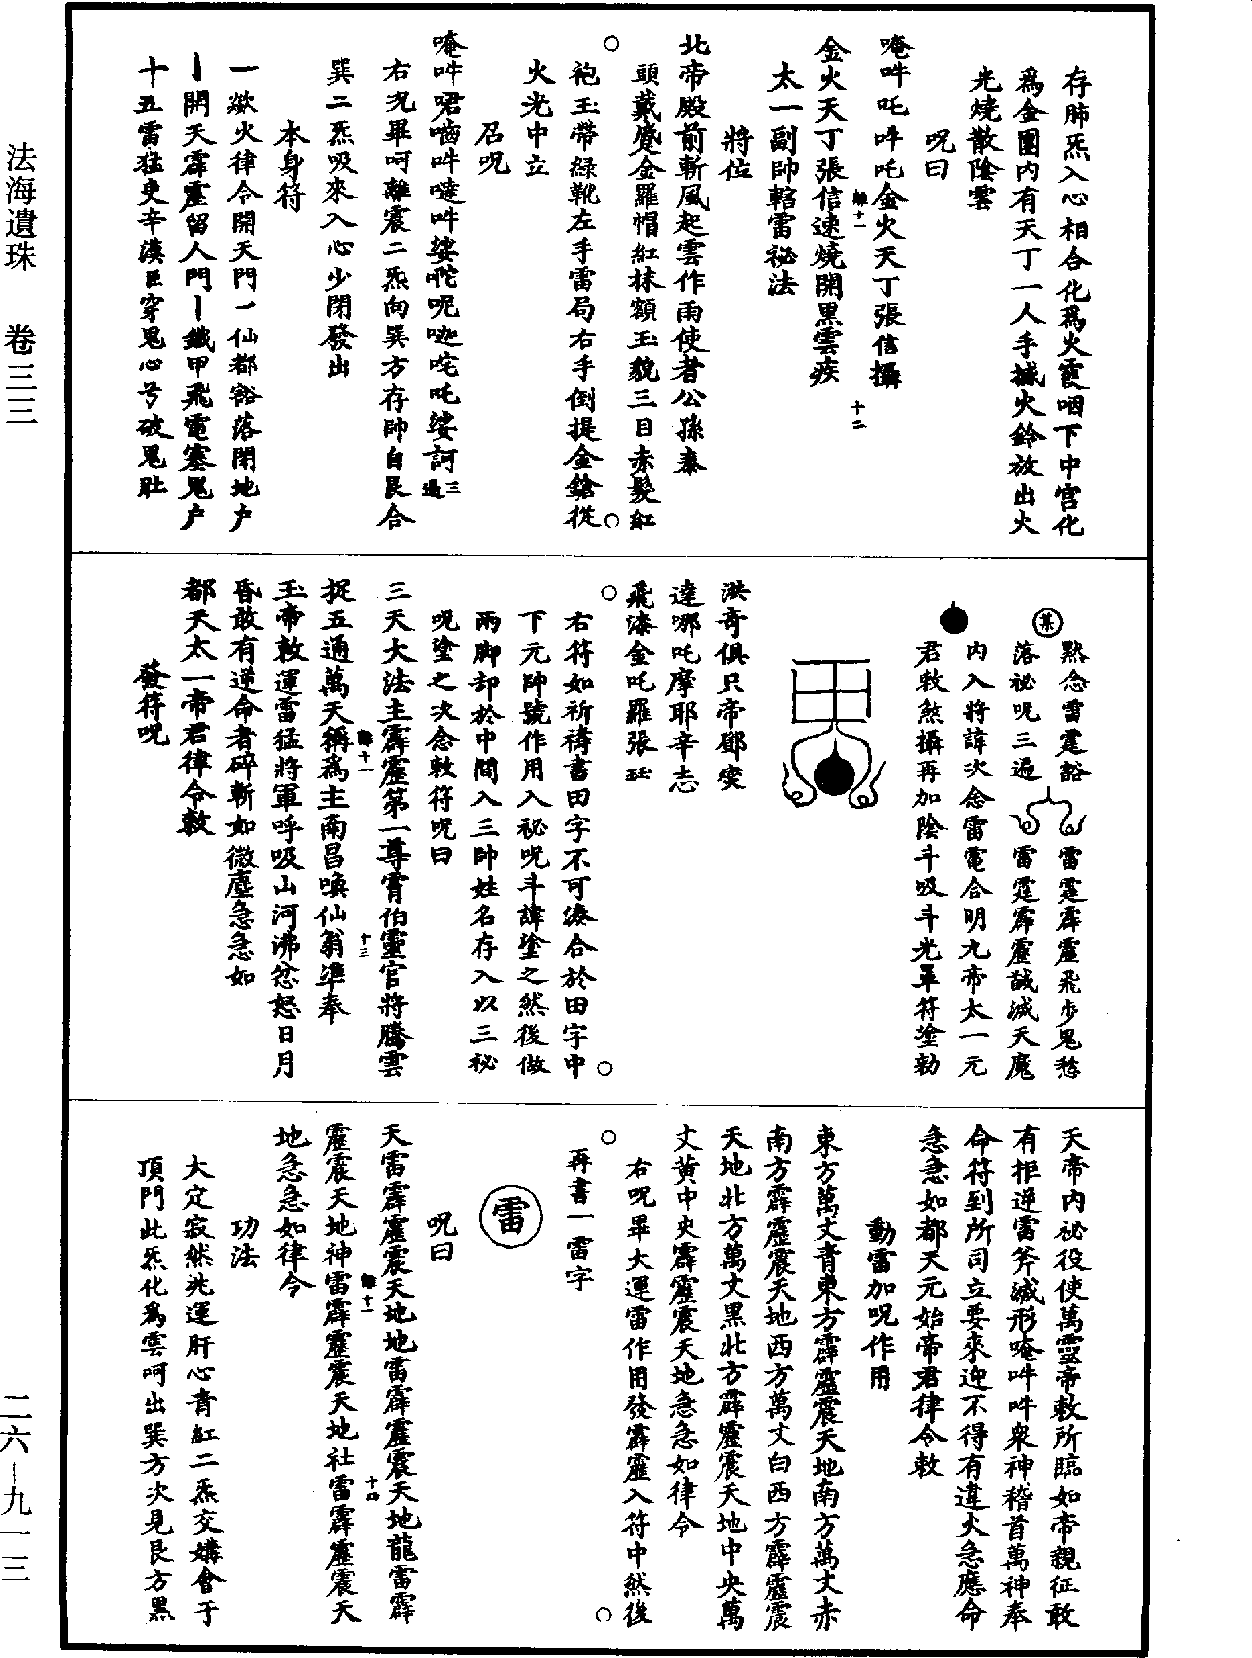 法海遺珠　卷三三
二六—九一三
存肺炁入心相合化爲火霞咽下中宫化
爲金團內有天丁一人手擲火鈴放出火
光燒散陰雲
呪曰
唵吽吒吽吒金火天丁張信攝
金火天丁張信速燒開黑雲疾
太一副帥轄雷祕法
將位
北帝殿前斬風起雲作雨使者公孫泰
頭戴慶金羅帽紅抹額玉貌三目赤髮紅
袍玉帶緑靴左手雷局右手倒提金鎗從
火光中立
召呪
唵吽㖟嚙吽噠吽娑呢咜吒娑訶三遍
右呪畢呵離震二炁向巽方存帥自艮合
巽二炁吸來入心少閉發出
本身符
一欻火律令開天門丶仙都豁落閉地户
丨開天霹靂留人門丨鐵甲飛電塞鬼户
十五雷猛吏辛漢臣穿鬼心号破鬼肚
某
黙念雷霆豁
落祕呪三遍
雷霆霹靂飛步鬼愁
雷霆霹靂誠滅天魔
內入將諱次念雷電合明九帝太一元
君敕煞攝再加陰斗吸斗光罩符塗勑
洪奇俱只帝鄧爕
達哪吒摩耶辛志
飛漆金吒羅張珏
右符如祈禱書田字不可湊合於田字中
下元帥號作用入祕呪斗諱塗之然後做
兩脚却於中間入三帥姓名存入以三祕
呪塗之次念敕符呪曰
三天大法主霹靂第一尊霄伯靈官將騰雲
捉五通萬天稱爲主南昌喚仙翁準奉
玉帝敕運雷猛將軍呼吸山河沸忿怒日月
昏敢有逆命者碎斬如微塵急急如
都天太一帝君律令敕
發符呪
天帝內祕役使萬靈帝敕所臨如帝親征敢
有拒逆雷斧滅形唵吽吽衆神稽首萬神奉
命符到所司立要來迎不得有違火急應命
急急如都天元始帝君律令敕
動雷加呪作用
東方萬丈青東方霹靂震天地南方萬丈赤
南方霹靂震天地西方萬丈白西方霹靂震
天地北方萬丈黑北方霹靂震天地中央萬
丈黄中央霹靂震天地急急如律令
右呪畢大運雷作用發霹靂入符中然後
再書一雷字
雷
呪曰
天雷霹靂震天地地雷霹靂震天地龍雷霹
靂震天地神雷霹靂震天地社雷霹靂震天
地急急如律令
功法
大定寂然兆運肝心青紅二炁交媾會于
頂門此炁化爲雲呵出巽方次見艮方黑